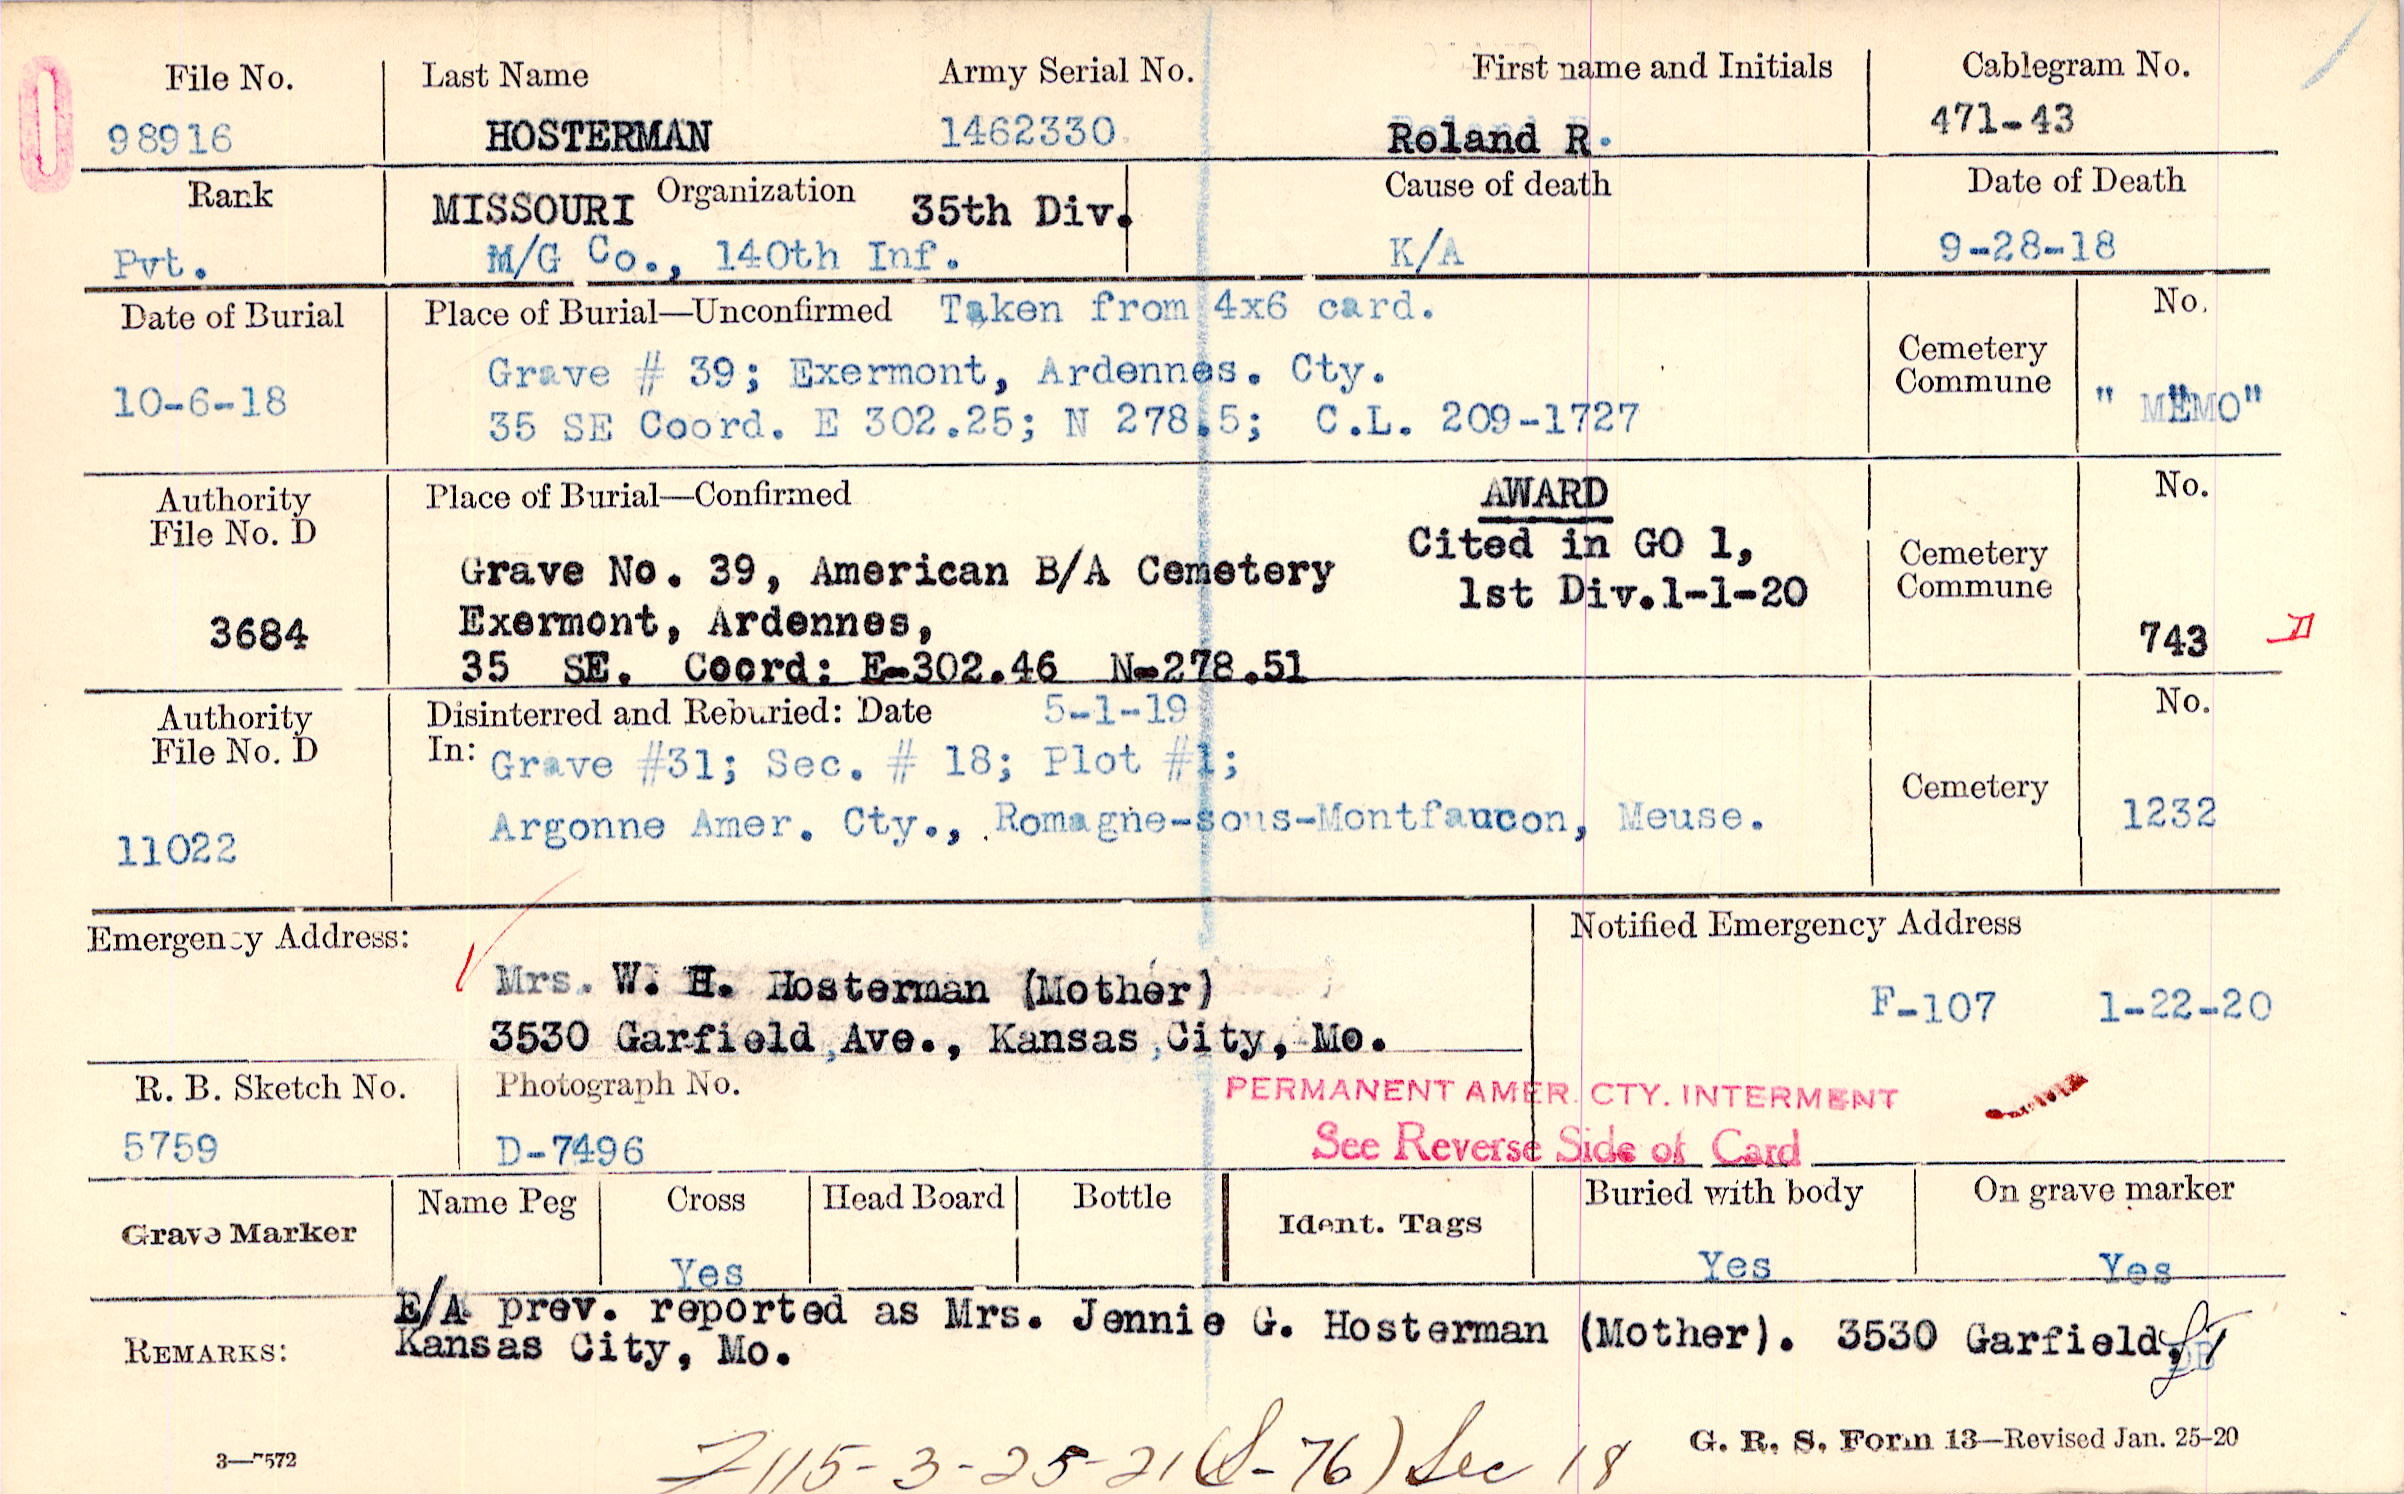 File No. Last Name Army Serial No. First name and Initials Cablegram No.
98916 HOSTERMAN 1462330 Roland R. 471-43
Rank MISSOURI Organization 35th Div. Cause of death Date of Death
Pvt. M/G Co., 140th Inf. K/A 9-28-18
Date of Burial Place of Burial—Unconfirmed Taken from 4x6 card. No.
Grave # 39; Exermont, Ardennes. Cty. Cemetery
Commune
10-6-18 35 SE Coord. E 302.25; N 278.5; C.L. 209-1727 " MEMO"
Authority Place of Burial—Confirmed AWARD No.
File No. D Cited in GO 1,
Grave No. 39, American B/A Cemetery 1st Div.1-1-20 Cemetery
Commune
3684 Exermont, Ardennes, 743
35 SE. Coord: E-302.46 N-278.51
Authority Disinterred and Reburied: Date 5-1-19 No.
File No. D In: Grave #31; Sec. # 18; Plot #1;
Cemetery
11022 Argonne Amer. Cty., Romagne-sous-Montfaucon, Meuse. 1232
Emergency Address: Notified Emergency Address
Mrs. W. H. Hosterman (Mother) F-107 1-22-20
3530 Garfield Ave., Kansas City, Mo.
R. B. Sketch No. Photograph No. PERMANENT AMER. CTY. INTERMENT
5759 D-7496 See Reverse Side of Card
Grave Marker Name Peg Cross Head Board Bottle Ident. Tags Buried with body On grave marker
Yes Yes Yes
REMARKS: E/A prev. reported as Mrs. Jennie G. Hosterman (Mother). 3530 Garfield,
Kansas City, Mo.
3—7572 G. R. S. Form 13—Revised Jan. 25-20
3-25-21 (S-76) Sec 18